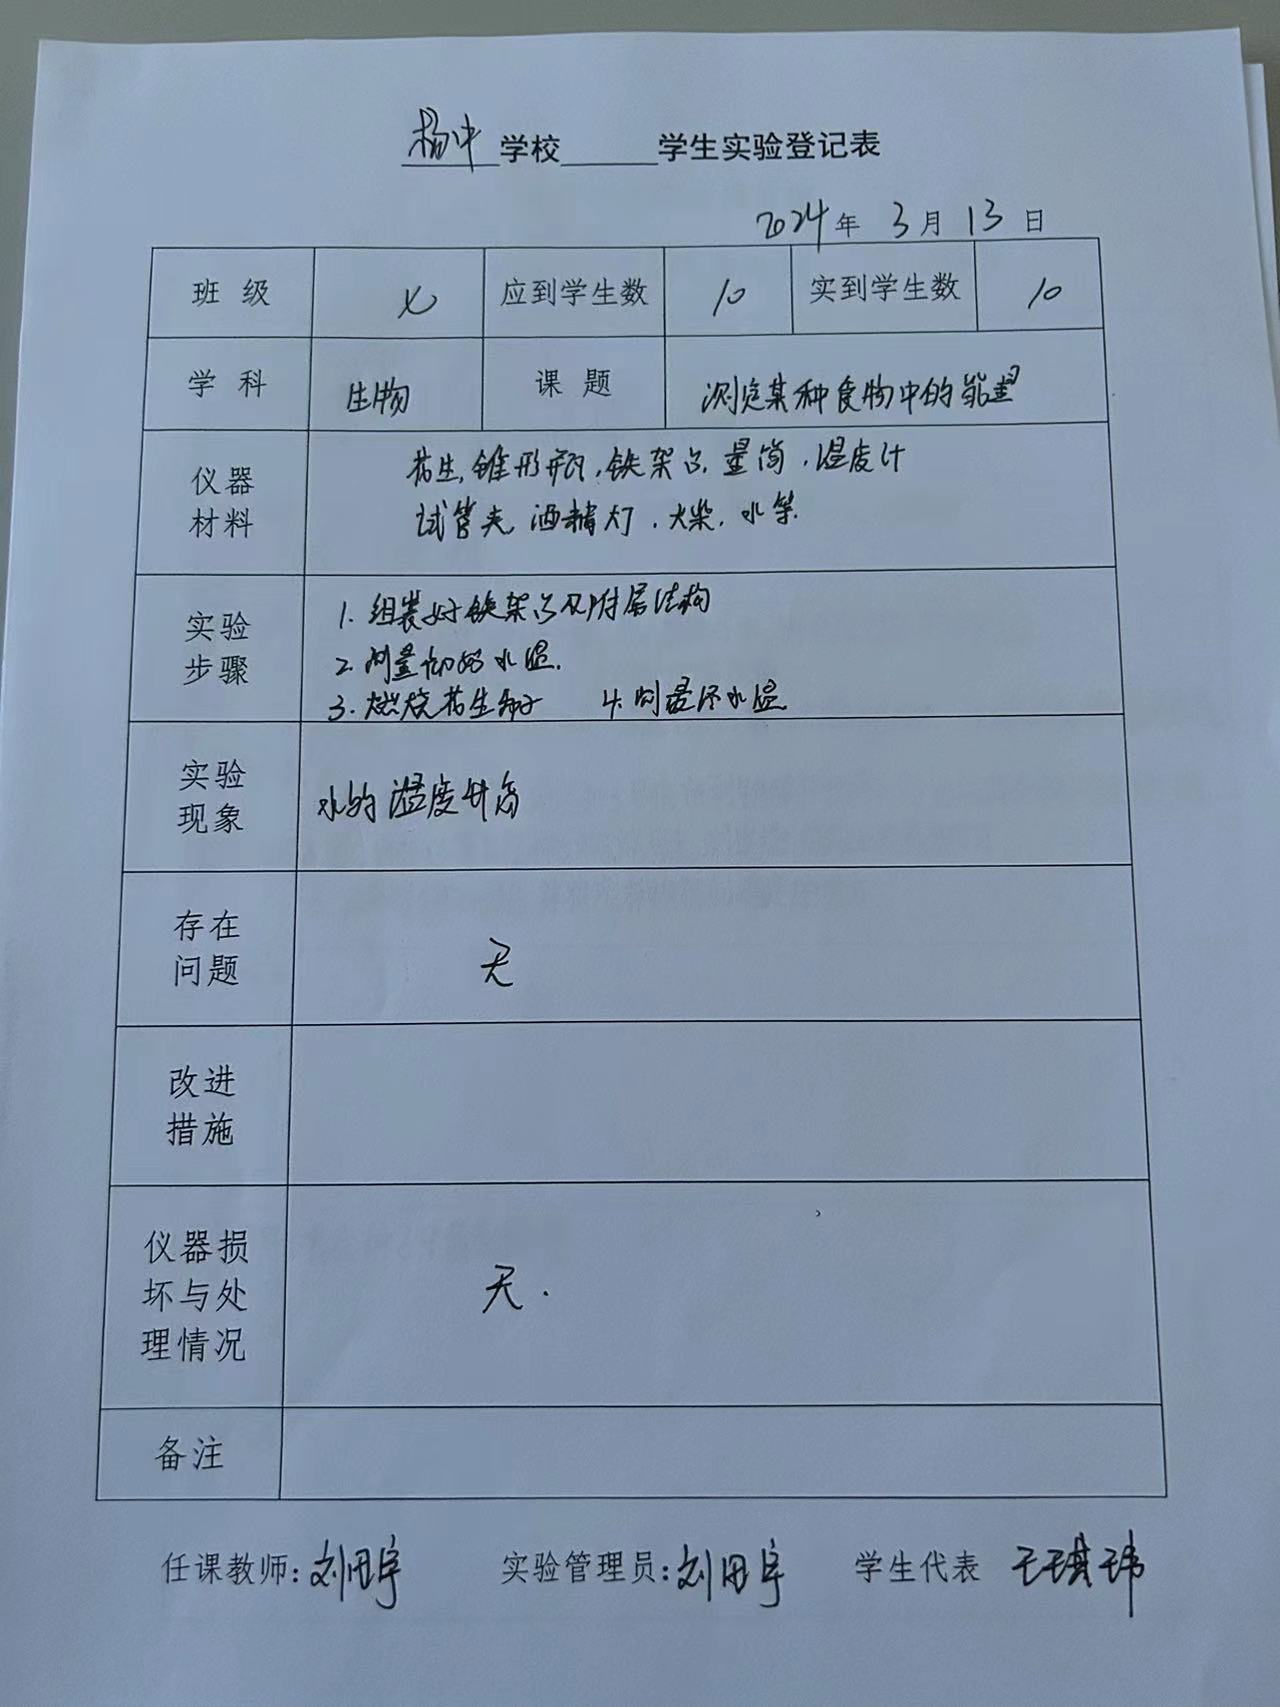 杨中学校______学生实验登记表
2024年 3月 13日
班 级 七 应到学生数 10 实到学生数 10
学 科 生物 课 题 测定某种食物中的能量
仪器 花生,锥形瓶,铁架台,量筒,温度计
材料 试管夹,酒精灯,火柴,水等
实验 1. 组装好铁架台及附属结构
步骤 2. 测量初始水温.
3. 燃烧花生种子 4. 测量终水温
实验
现象
水的温度升高
存在
问题
无
改进
措施
仪器损
坏与处
理情况
无.
备注
任课教师:刘田宇 实验管理员:刘田宇 学生代表 王琪玮